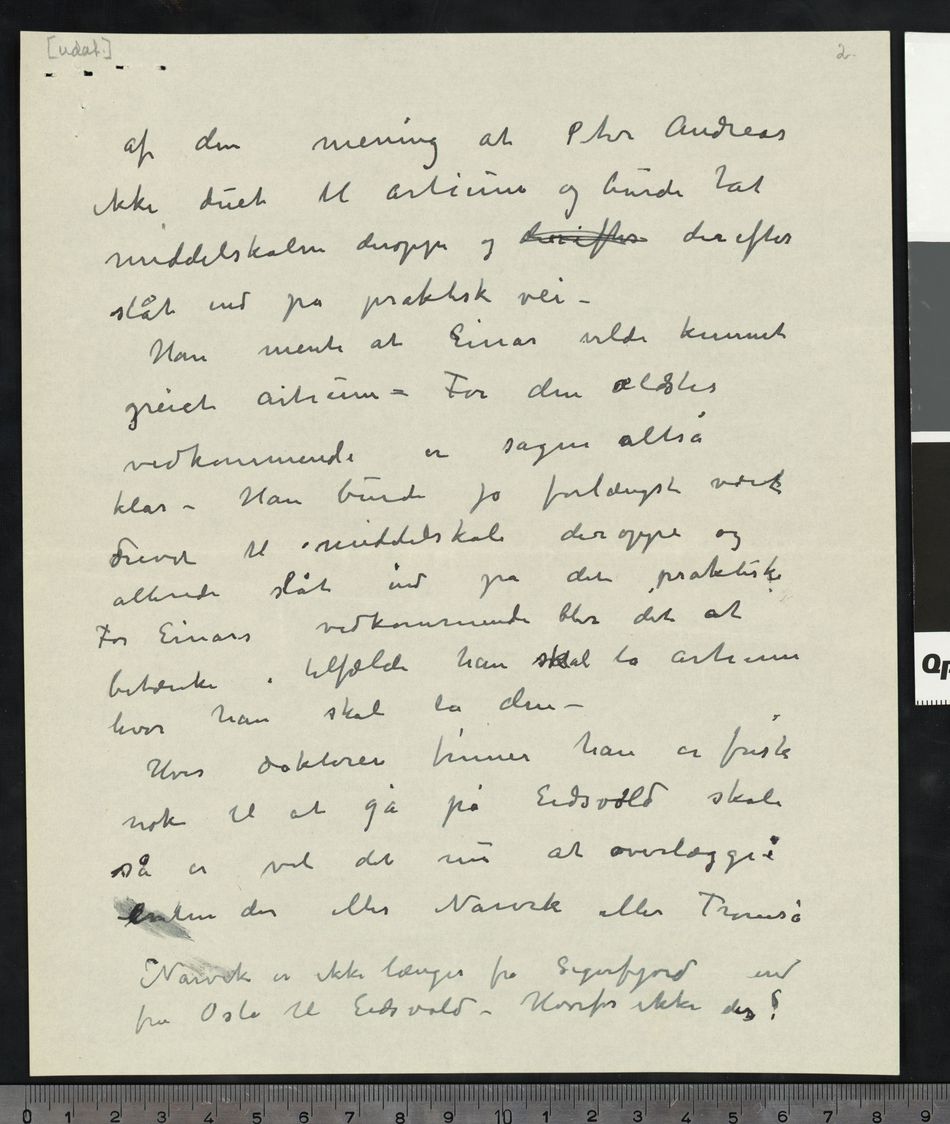 [udat.]
2.
af den mening at Peter Andreas
ikke duet til artium og burde tat
middelskolen deroppe og derefter derefter
slåt ind på praktisk vei -
Han mente at Einar vilde kunnet
greiet artium = For den ældstes
vedkommende er sagen altså
klar - Han burde jo forlængst været
drevet til middelskole deroppe og
allerede slåt ind på det praktiske
For Einars vedkommende blir det at
betænke i tilfælde han skal ta artium
hvor han skal ta den -
Hvis doktoren finner han er frisk
nok til at gå på Eidsvold skole
så er vel det nu at overlægge:
enten der eller Narvik eller Tromsø
Narvik er ikke længer fra Sigerfjord end
fra Oslo til Eidsvold - Hvorfor ikke der?
0 1 2 3 4 5 6 7 8 9 10 1 2 3 4 5 6 7 8 9